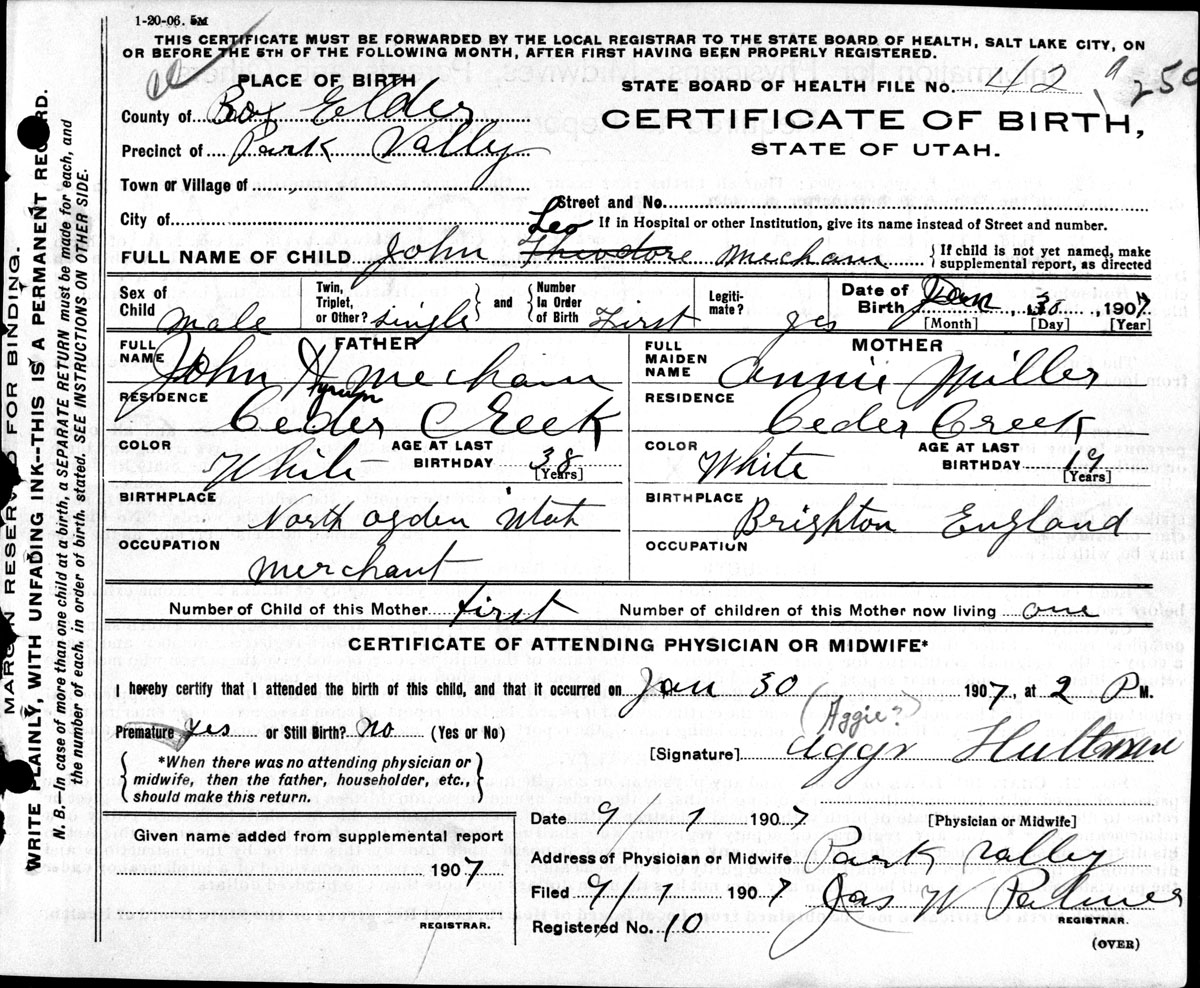 1-20-06. 5M
THIS CERTIFICATE MUST BE FORWARDED BY THE LOCAL REGISTRAR TO THE STATE BOARD OF HEALTH, SALT LAKE CITY, ON
OR BEFORE THE 5TH OF THE FOLLOWING MONTH, AFTER FIRST HAVING BEEN PROPERLY REGISTERED.
PLACE OF BIRTH
County of Box Elder
Precinct of Park Vally
Town or Village of
City of
STATE BOARD OF HEALTH FILE NO. 42
250
CERTIFICATE OF BIRTH,
STATE OF UTAH.
Street and No.
If in Hospital or other Institution, give its name instead of Street and number.
Leo
FULL NAME OF CHILD John Theodore Mecham
If child is not yet named, make
supplemental report, as directed
Sex of Child male
Twin, Triplet, or Other? single
and
Number In Order of Birth First
Legitimate? yes
Date of Birth Jan 30, 1907
[Month] [Day] [Year]
FATHER
FULL NAME John Hyrum Mecham
RESIDENCE Ceder Creek
COLOR White
AGE AT LAST BIRTHDAY 38 [Years]
BIRTHPLACE North Ogden Utah
OCCUPATION Merchant
MOTHER
FULL MAIDEN NAME Annie Miller
RESIDENCE Ceder Creek
COLOR White
AGE AT LAST BIRTHDAY 19 [Years]
BIRTHPLACE Brighton England
OCCUPATION
Number of Child of this Mother First
Number of children of this Mother now living one
CERTIFICATE OF ATTENDING PHYSICIAN OR MIDWIFE*
I hereby certify that I attended the birth of this child, and that it occurred on Jan 30 1907, at 2 P M.
Premature yes or Still Birth? no (Yes or No)
(Aggie?)
[Signature] Aggr Hultman
*When there was no attending physician or
midwife, then the father, householder, etc.,
should make this return.
[Physician or Midwife]
Date 9 7 1907
Address of Physician or Midwife Park Valley
Filed 9/7 1907 Jas W Palmer
REGISTRAR.
Registered No. 10
(OVER)
Given name added from supplemental report
1907
REGISTRAR.
MARGIN RESERVED FOR BINDING.
WRITE PLAINLY, WITH UNFADING INK--THIS IS A PERMANENT RECORD.
N. B.—In case of more than one child at a birth, a SEPARATE RETURN must be made for each, and
the number of each, in order of birth, stated. SEE INSTRUCTIONS ON OTHER SIDE.